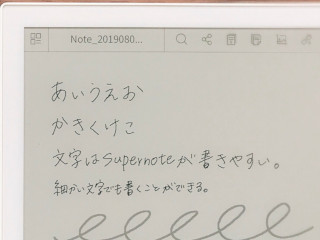 Note_2019080...
あいうえお
かきくけこ
文字はsupernoteが書きやすい。
細かい文字でも書くことができる。